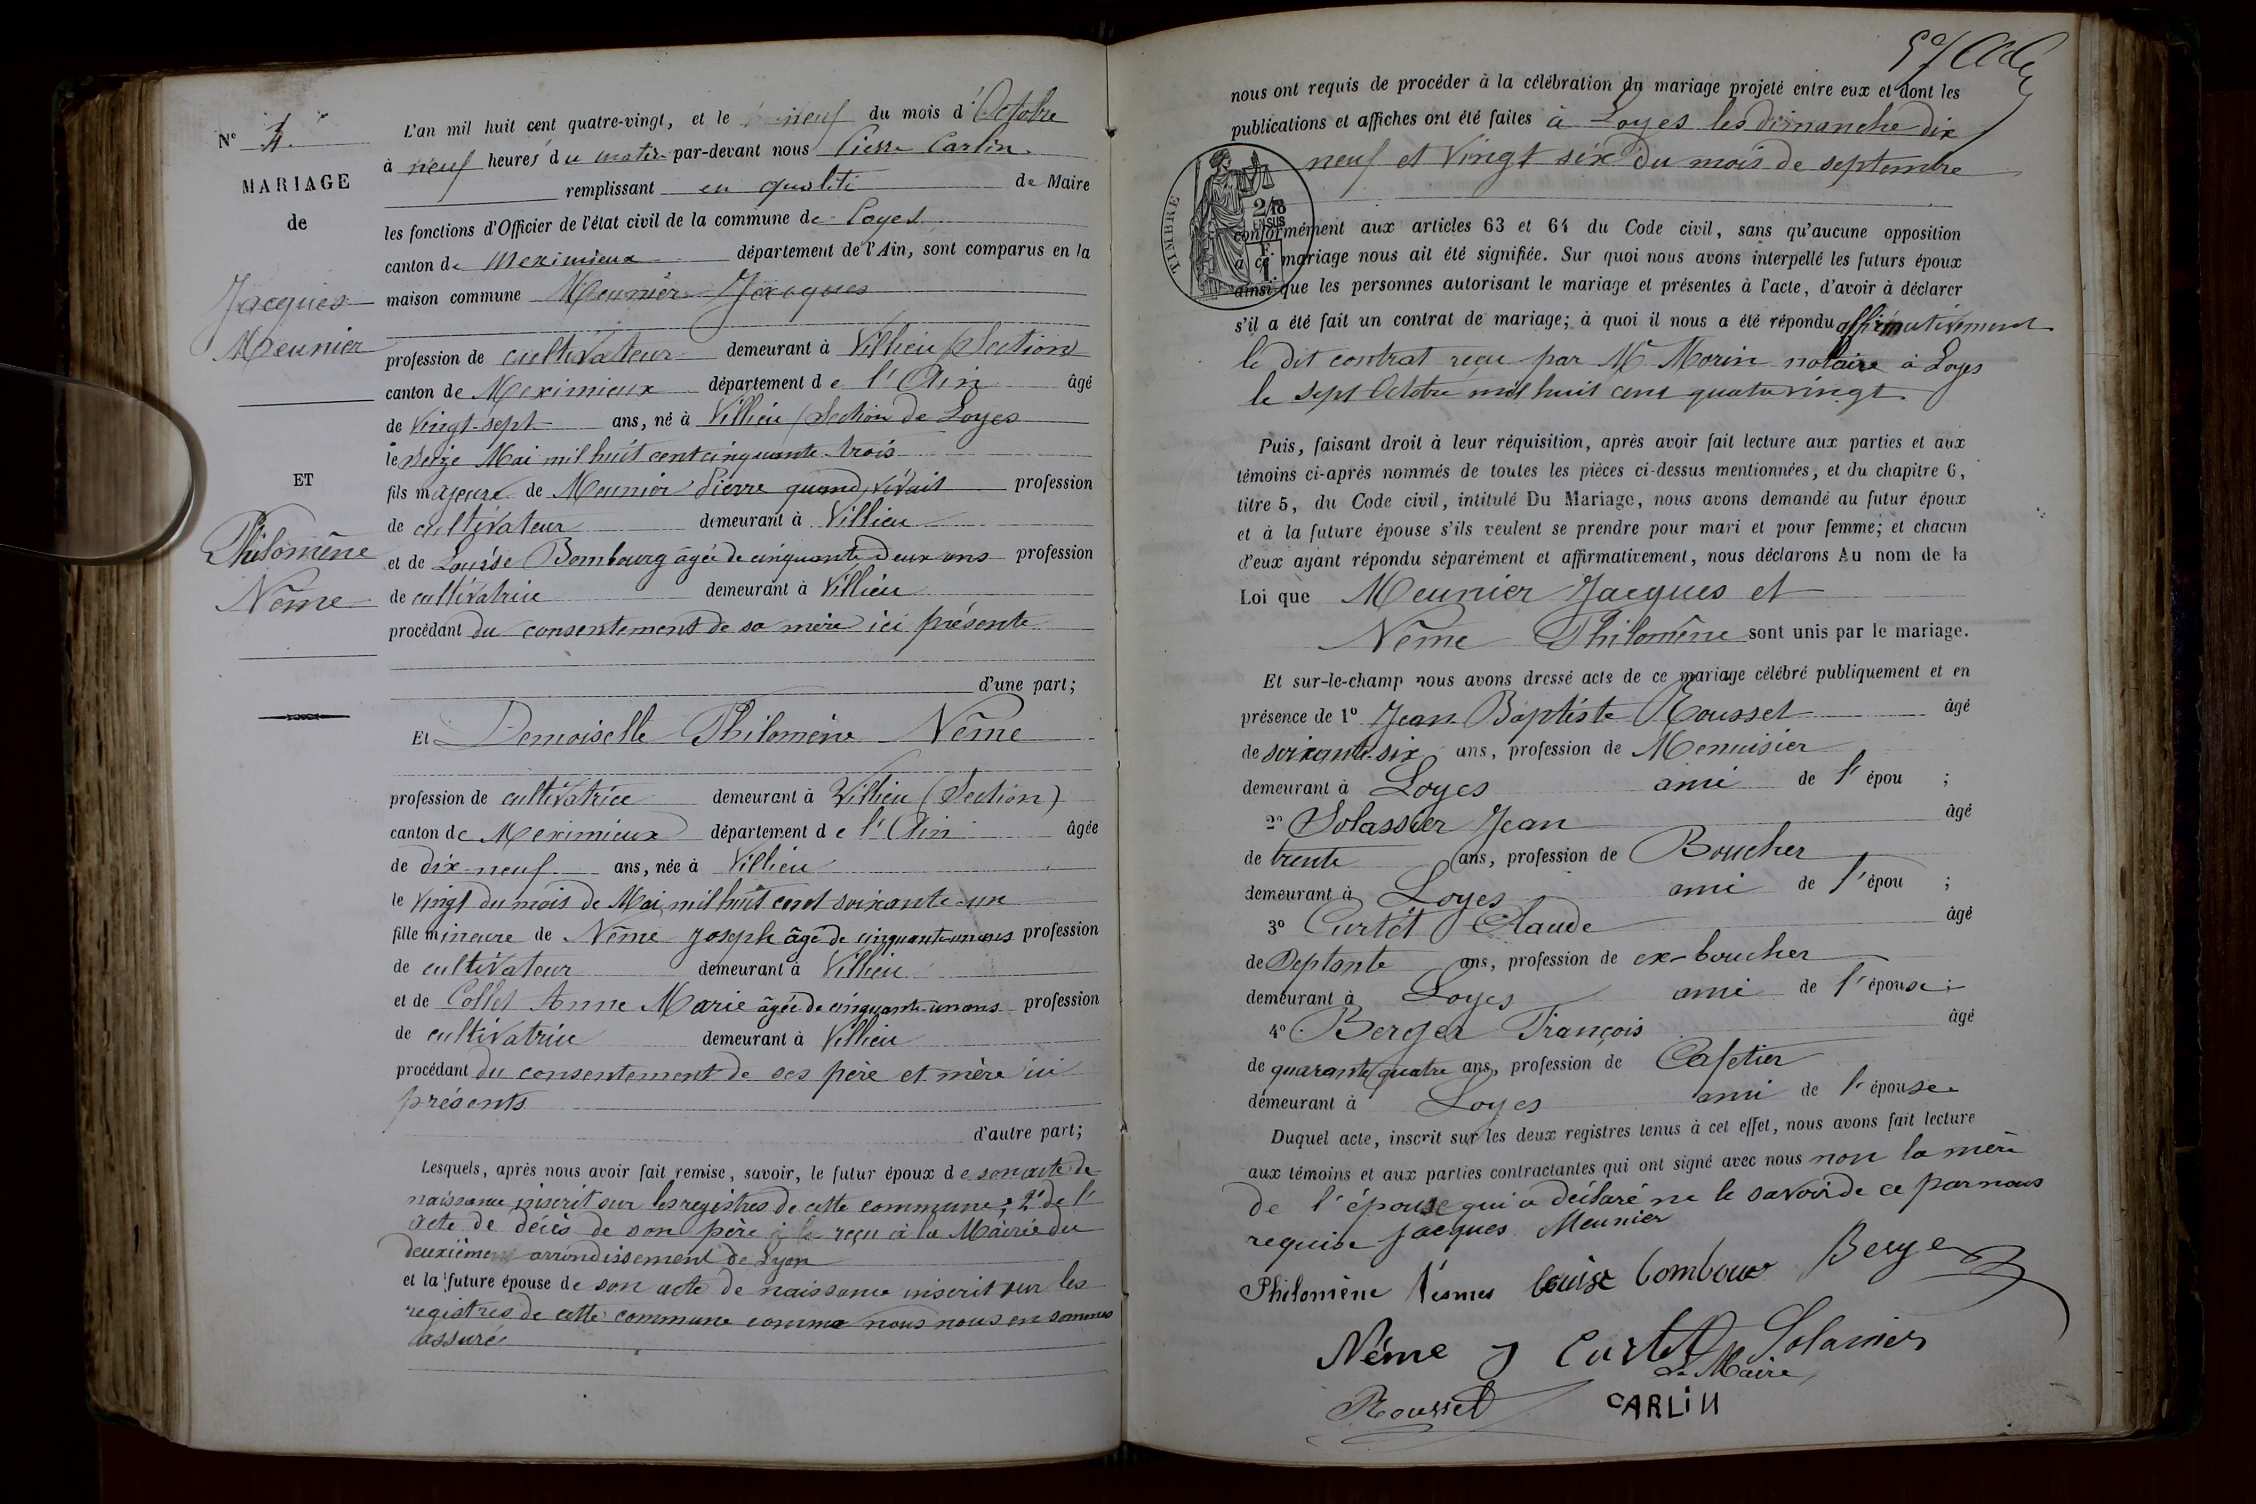 N° 4.
MARIAGE
de
Jacques
Meunier
ET
Philomène
Nême
L'an mil huit cent quatre-vingt, et le neuf du mois d'Octobre
à neuf heures du matin par-devant nous Pierre Carlin
remplissant en qualité de Maire
les fonctions d'Officier de l'état civil de la commune de Loyes
canton de Meximieux département de l'Ain, sont comparus en la
maison commune Meunier Jacques
profession de cultivateur demeurant à Villieu (Section)
canton de Meximieux département de l'Ain âgé
de vingt-sept ans, né à Villieu (Section de Loyes
le seize Mai mil huit cent cinquante trois
fils majeure de Meunier Pierre quand vivait profession
de cultivateur demeurant à Villieu
et de Louise Bombourg âgée de cinquante deux ans profession
de cultivatrice demeurant à Villieu
procédant du consentement de sa mère ici présente
d'une part;
Et Demoiselle Philomène Nême
profession de cultivatrice demeurant à Villieu (Section)
canton de Meximieux département de l'Ain âgée
de dix-neuf ans, née à Villieu
le vingt du mois de Mai mil huit cent soixante-un
fille mineure de Nême Joseph âgé de cinquante-un ans profession
de cultivateur demeurant à Villieu
et de Collet Anne Marie âgée de cinquante-un ans profession
de cultivatrice demeurant à Villieu
procédant du consentement de ses père et mère ici
présents
d'autre part;
Lesquels, après nous avoir fait remise, savoir, le futur époux de son acte de
naissance inscrit sur les registres de cette commune; 2° de l'
acte de décès de son père reçu à la Mairie du
deuxième arrondissement de Lyon
et la future épouse de son acte de naissance inscrit sur les
registres de cette commune comme nous nous en sommes
assuré
nous ont requis de procéder à la célébration du mariage projeté entre eux et dont les
publications et affiches ont été faites à Loyes les dimanche dix
neuf et vingt six du mois de septembre
TIMBRE
conformément aux articles 63 et 64 du Code civil, sans qu'aucune opposition
à ce mariage nous ait été signifiée. Sur quoi nous avons interpellé les futurs époux
ainsi que les personnes autorisant le mariage et présentes à l'acte, d'avoir à déclarer
s'il a été fait un contrat de mariage; à quoi il nous a été répondu affirmativement
le dit contrat reçu par M Morin notaire à Loyes
le sept Octobre mil huit cent quatre vingt
Puis, faisant droit à leur réquisition, après avoir fait lecture aux parties et aux
témoins ci-après nommés de toutes les pièces ci-dessus mentionnées, et du chapitre 6,
titre 5, du Code civil, intitulé Du Mariage, nous avons demandé au futur époux
et à la future épouse s'ils veulent se prendre pour mari et pour femme; et chacun
d'eux ayant répondu séparément et affirmativement, nous déclarons Au nom de la
Loi que Meunier Jacques et
Nême Philomène sont unis par le mariage.
Et sur-le-champ nous avons dressé acte de ce mariage célébré publiquement et en
présence de 1° Jean Baptiste Rousset âgé
de soixante-six ans, profession de Menuisier
demeurant à Loyes ami de l'épou ;
2° Solassier Jean âgé
de trente ans, profession de Boucher
demeurant à Loyes ami de l'épou ;
3° Curtet Claude âgé
de Septante ans, profession de ex-boucher
demeurant à Loyes ami de l'épouse;
4° Berger François âgé
de quarante quatre ans, profession de Cafetier
demeurant à Loyes ami de l'épouse
Duquel acte, inscrit sur les deux registres tenus à cet effet, nous avons fait lecture
aux témoins et aux parties contractantes qui ont signé avec nous non la mère
de l'épouse qui a déclaré ne le savoir de ce par nous
requise Jacques Meunier
Philomène Nesmes Louise Bombour Berger
Néme J Curtet Solassier
Le Maire,
Rousset CARLIN